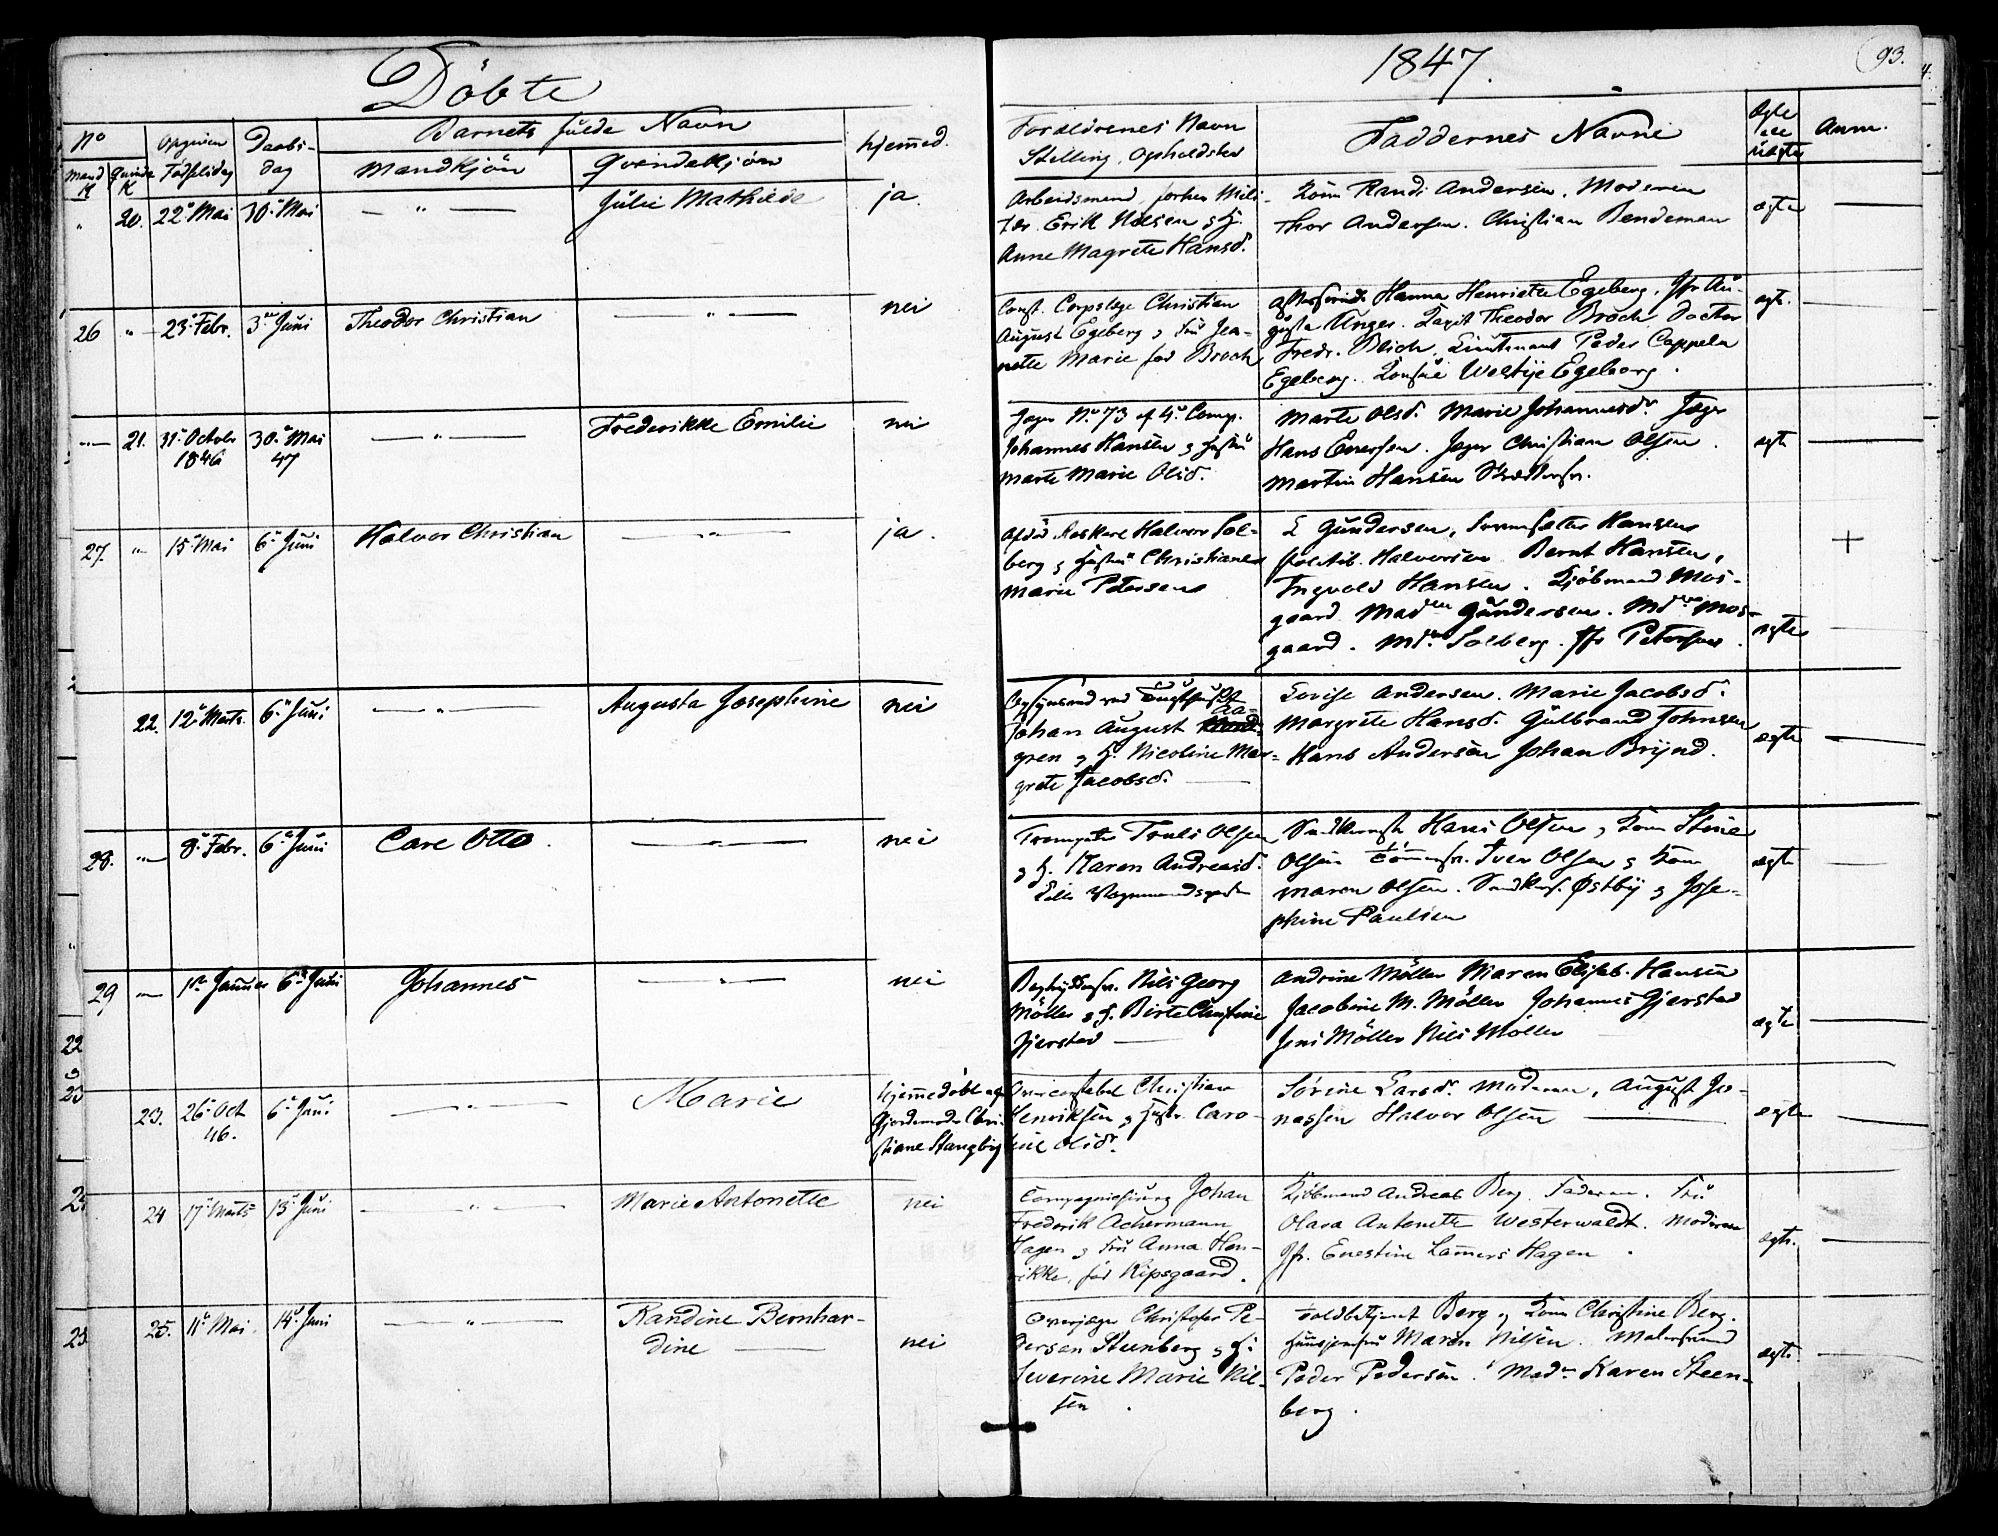 Döbte
1847.
93.
No
Opgiven
Fødselsdag
Daabs-
dag
Barnets fulde Navn
Mandkjön
Qvindekjön
hjemmed.
Mand K
Quinde K
Forældrenes Navn
Stilling, Opholdsted
Faddernes Navne
Ægte
Uægte
Anm.
" 20. 22 Mai 30 Mai — " — Julie Mathilde ja.
Arbeidsmand, forhen Mili-
tær. Erik Nilsen & H.
Anne Magrete Hansd.
Kone Randi Andersen, Moderen
Thor Andersen. Christian Bendeman
ægte
26 " 23 Febr. 3 Juni Theodor Christian — " — nei
Const. Corpslæge Christian
August Egeberg & Fru Jea-
nette Marie fød Broch
Hanna Henriette Egeberg. Jfr Au-
gusta Unger. Capit Theodor Broch Doctor
Fredr. Blich. Lieutenant Peder Cappeln
Egeberg. Westye Egeberg.
egte.
" 21. 31 Octobr 1846 30 Mai 47 — " — Frederikke Emilie nei
Jæger No 73 af 4 Comp.
Johannes Hansen & Hustru
Marte Marie Olsd.
Marte Olsd. Marie Johannesd. Jæger
Hans Enersen. Jæger Christian Olsen.
Martin Hansen
egte
27. " 15 Mai 6 Juni Halvor Christian — " — ja.
Halvor Sol-
berg & Hustru Christiane
Marie Petersen
L Gundersen, Hansen
Halvorsen Bernt Hansen,
Ingvold Hansen. Kjöbmand Mos-
gaard Madm Gundersen. Mdm Mos-
gaard. Mdm Solberg. Jfr Petersen.
ægte
+
22. 12 Marts 6 Juni — " — Augusta Josephine nei
Opsynsmd ved
Johan August
gren & H. Nicoline Mar-
grete Jacobsd.
Lovise Andersen. Marie Jacobsd.
Margrete Hansd. Gulbrand Johnsen
Hans Andersen Johan Brynd.
ægte
28. " 8 Febr. 6 Juni Carl Otto. — " — nei
Trompeter Truls Olsen
& H. Karen Andreasd.
Hans Olsen & Kone Stine
Olsen Iver Olsen & Kone
Maren Olsen. Østby & Jose-
phine Paulsen
ægte
29 " 1 Januar 6 Juni Johannes — " — nei
Nils Georg
Möller & H. Birte Christine
Gjerstad
Andrine Möller Maren Elisab. Hansen
Jacobine M. Möller Johannes Gjerstad
Jens Möller Nils Möller
ægte
23. 26 Oct 46. 6 Juni — " — Marie
Hjemmedöbt af
Gjordemoder Chri-
stiane Stangeby
Overconstabel Christian
Henriksen & Hustr. Caro-
line Olsd.
Sörine Larsd. Moderen, August Jo-
nassen Halvor Olsen
ægte
24 17 Marts 13 Juni — " — Marie Antonette nei
Compagniechirurg Johan
Frederik Achermann
Hagen & Fru Anna Hen-
rikke, fød Ripsgaard.
Kjöbmand Andreas Berg. Faderen. Fru
Olava Antonette Westerwaldt. Moderen
Jfr. Enestine Lamers Hagen.
egte.
25. 11 Mai. 14 Juni — " — Randine Bernhar-
dine nei
Overjæger Christofer Pe-
dersen Steenberg & H.
Severine Marie Nil-
sen.
Toldbetjent Berg & Kone Christine Berg.
Maren Nilsen.
Peder Pedersen. Madm Karen Steen-
berg.
ægte.